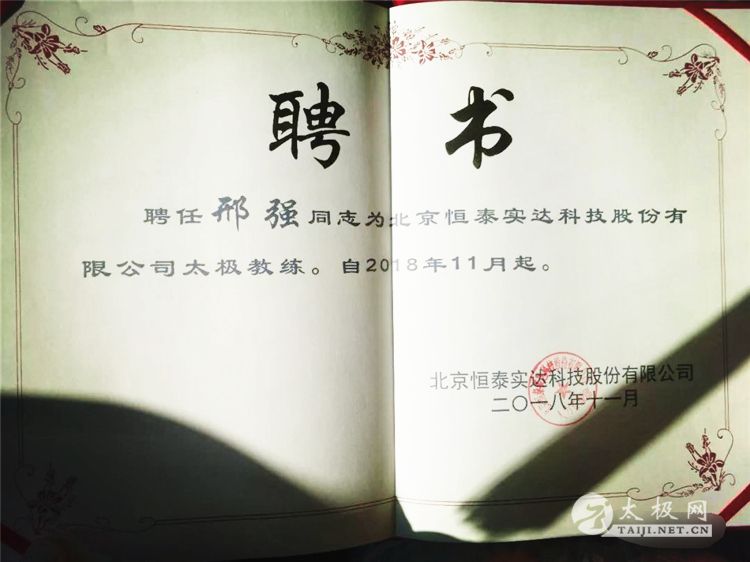 聘 书
聘任邢强同志为北京恒泰实达科技股份有
限公司太极教练。自2018年11月起。
北京恒泰实达科技股份有限公司
二〇一八年十一月
太极网
TAIJI.NET.CN